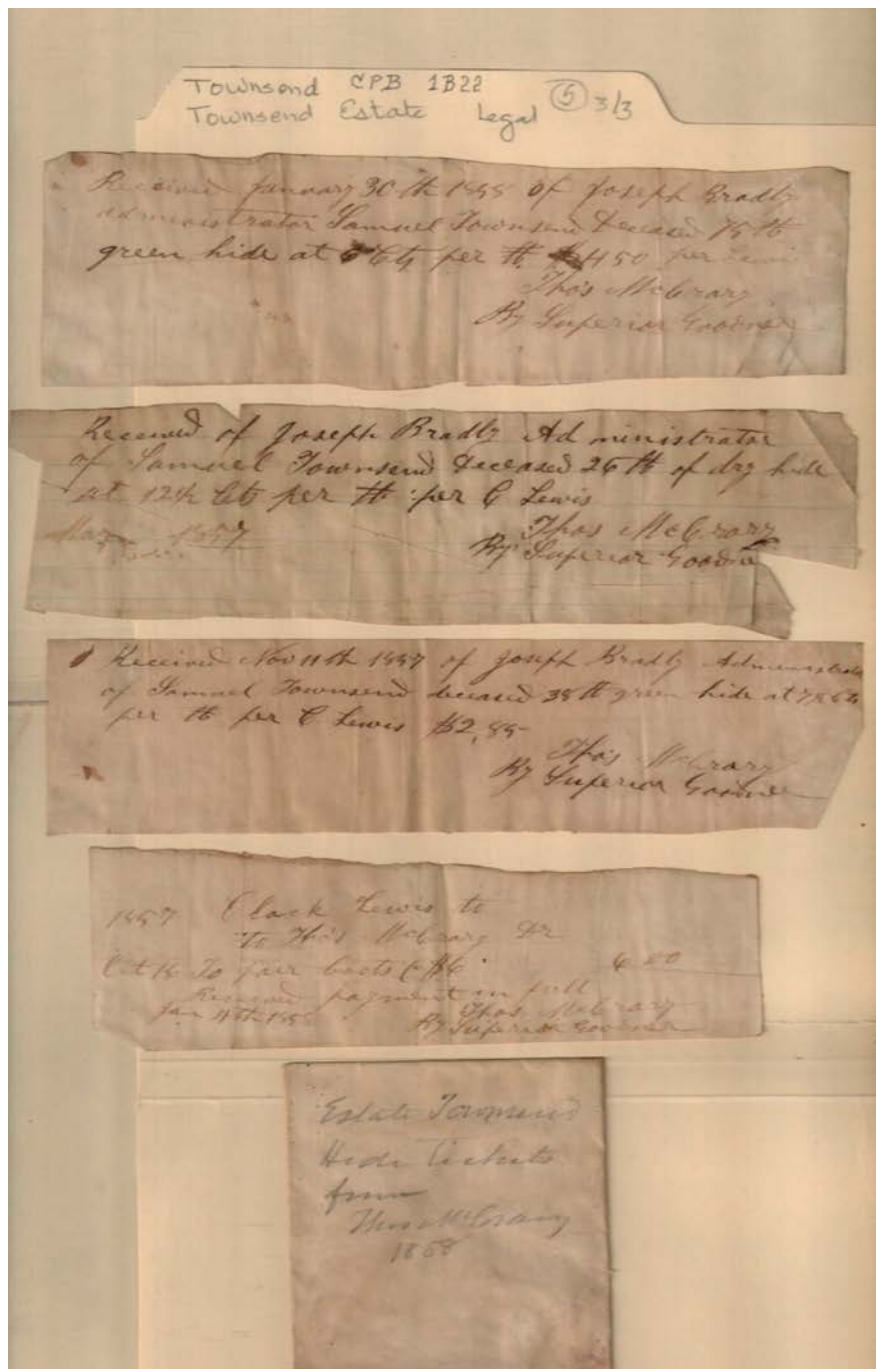 Townsend CPB 1B22 5 3/3
Townsend Estate Legal
Received January 30th 1858 of Joseph Bradly
administrator Samuel Townsend Deceased 75 ℔
green hide at 6 Cts per ℔ $4 50 per Lewis
Thos McCrary
By Superior Goodner
Received of Joseph Bradly Administrator
of Samuel Townsend Deceased 26 ℔ of dry hide
at 12½ Cts per ℔ per C Lewis
1857 Thos McCrary
By Superior Goodne
Received Nov 11th 1857 of Joseph Bradly Administrator
of Samuel Townsend deceased 38 ℔ green hide at
per ℔ per C Lewis $2,85
Thos McCrary
By Superior Goodner
1857 Clack Lewis to
to Thos McCrary Dr
Oct 16 To pair boots @ $6 6 00
Received payment in full
Jan 11th 1858 Thos McCrary
By Superior Goodner
Estate Townsend
Hide Tickets
from
Thos McCrary
1858